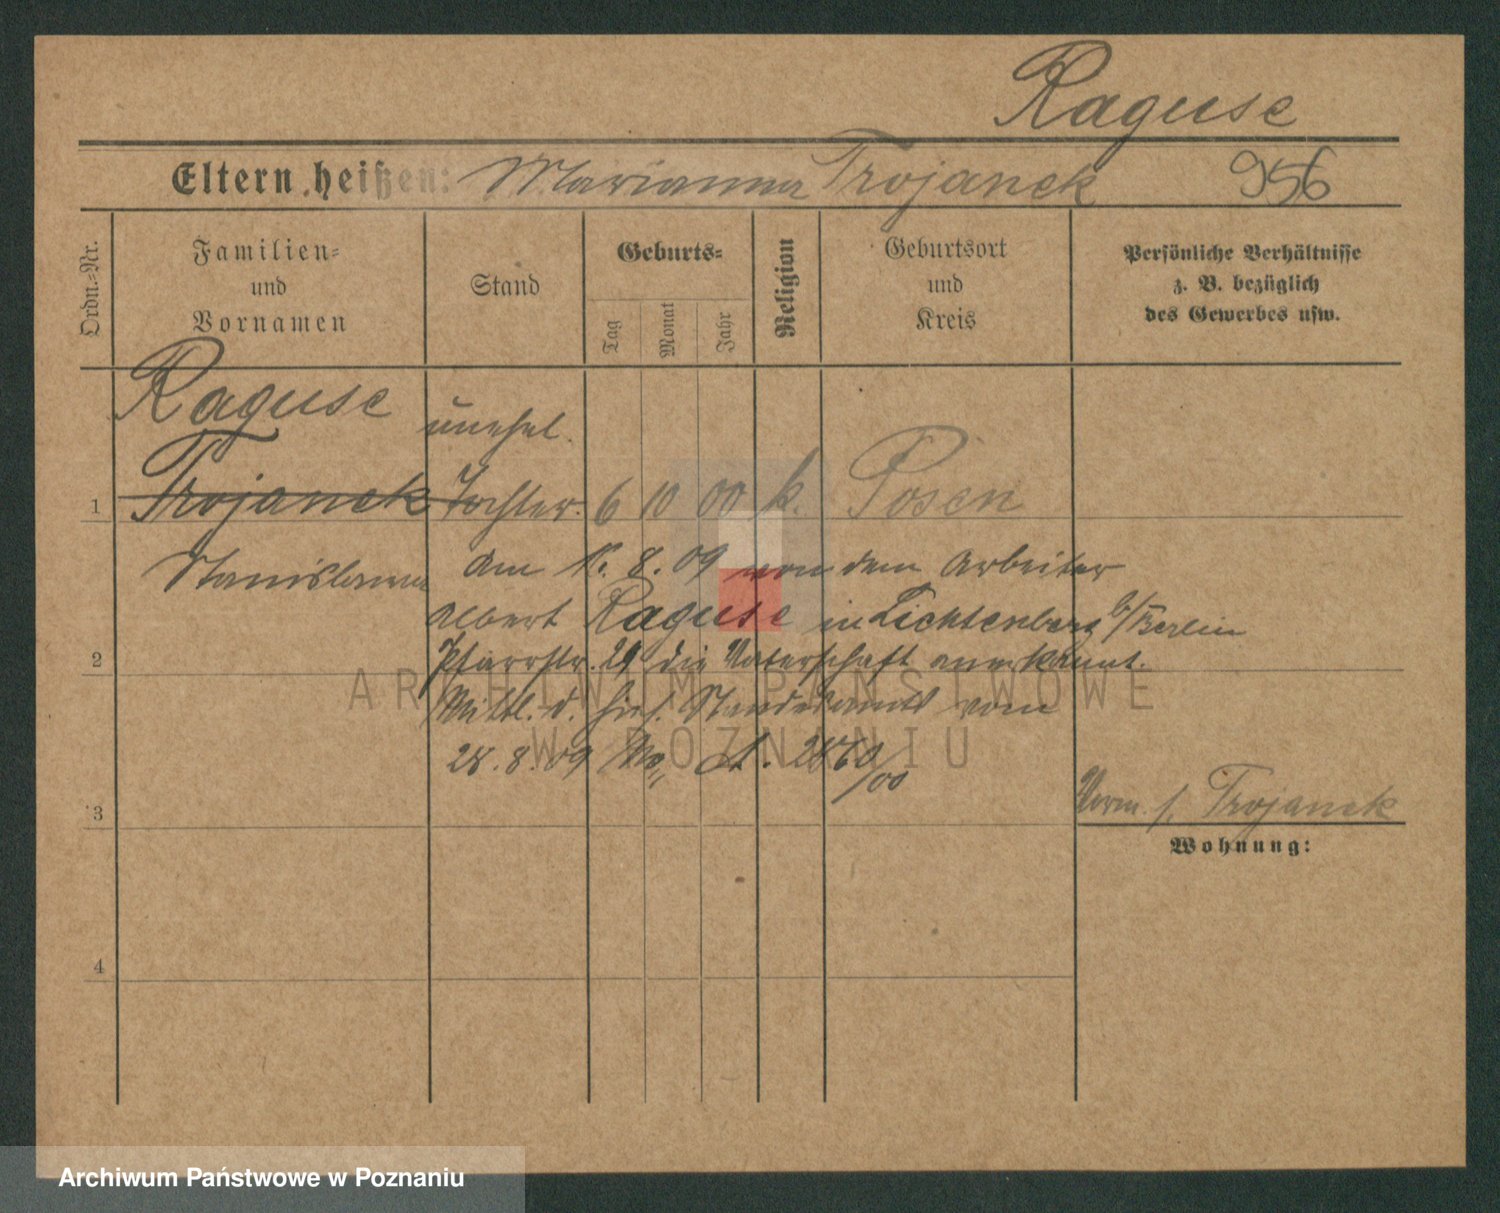 Raguse
Eltern heißen: Marianna Trojanek 956
Ordn.-Nr.
Familien-
und
Vornamen
Stand
Geburts-
Tag
Monat
Jahr
Religion
Geburtsort
und
Kreis
Persönliche Verhältnisse
z. B. bezüglich
des Gewerbes usw.
Raguse
unehel.
1 Trojanek Tochter. 6 10 00 k. Posen
Stanislawa
Am 8. 09 von dem Arbeiter
Albert Raguse in Lichtenberg b/Berlin
Pfarrstr. 29 die Vaterschaft anerkannt.
2
Mittl. d. hies. Standesamts vom
28. 8. 09 A. 2860/00
Verm. s. Trojanek
3
Wohnung:
4
ARCHIWUM PAŃSTWOWE
W POZNANIU
Archiwum Państwowe w Poznaniu